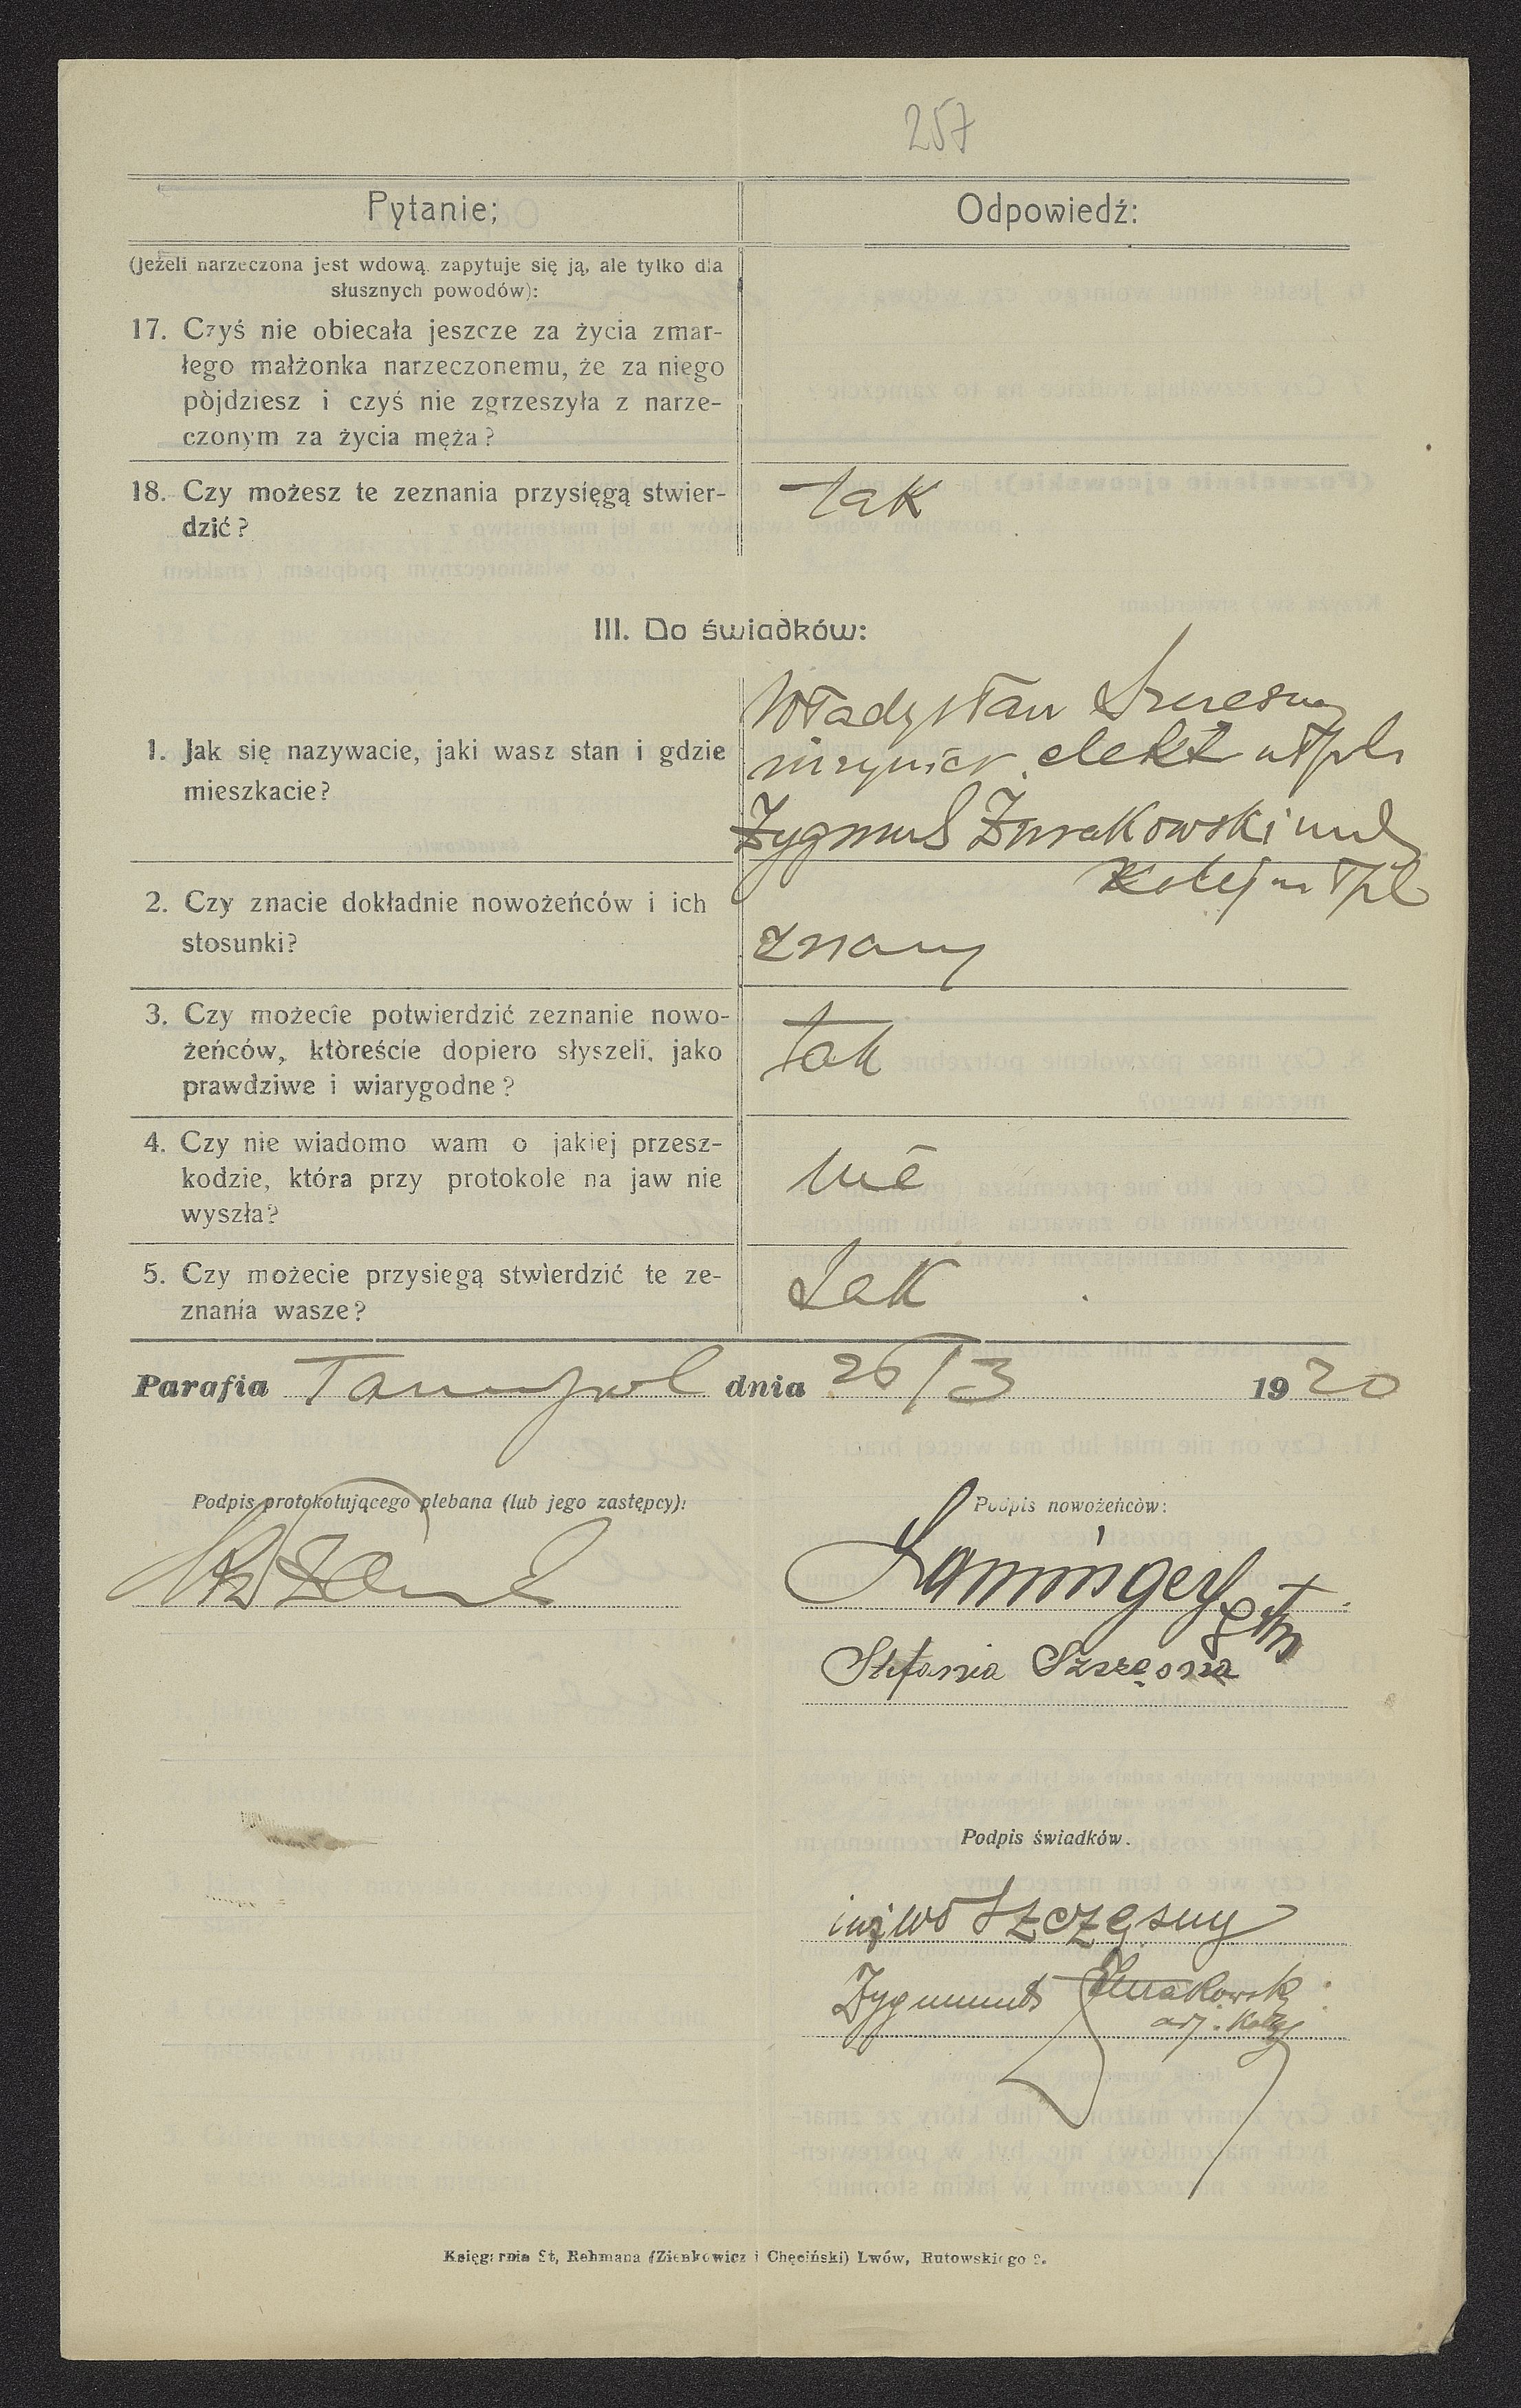 257
Pytanie; Odpowiedź:
(Jeżeli narzeczona jest wdową, zapytuje się ją, ale tylko dla
słusznych powodów):
17. Czyś nie obiecała jeszcze za życia zmar-
łego małżonka narzeczonemu, że za niego
pòjdziesz i czyś nie zgrzeszyła z narze-
czonym za życia męża?
18. Czy możesz te zeznania przysięgą stwier- tak
dzić?
III. Do świadków:
Władysław
1. Jak się nazywacie, jaki wasz stan i gdzie elekt
mieszkacie?
Zygmunt Żurakowski
2. Czy znacie dokładnie nowożeńców i ich
stosunki? znamy
3. Czy możecie potwierdzić zeznanie nowo-
żeńców, któreście dopiero słyszeli, jako tak
prawdziwe i wiarygodne?
4. Czy nie wiadomo wam o jakiej przesz-
kodzie, która przy protokole na jaw nie nie
wyszła?
5. Czy możecie przysiegą stwierdzić te ze- tak
znania wasze?
Parafia Tarnopol dnia 26/3 1920
Podpis protokołującego plebana (lub jego zastępcy): Podpis nowożeńców:
Stefania Szczęsna
Podpis świadków.
inż Wł Szczęsny
Zygmunt Żurakowski
adj. kolej
Księgarnia St, Rehmana (Zienkowicz i Chęciński) Lwów, Rutowskiego